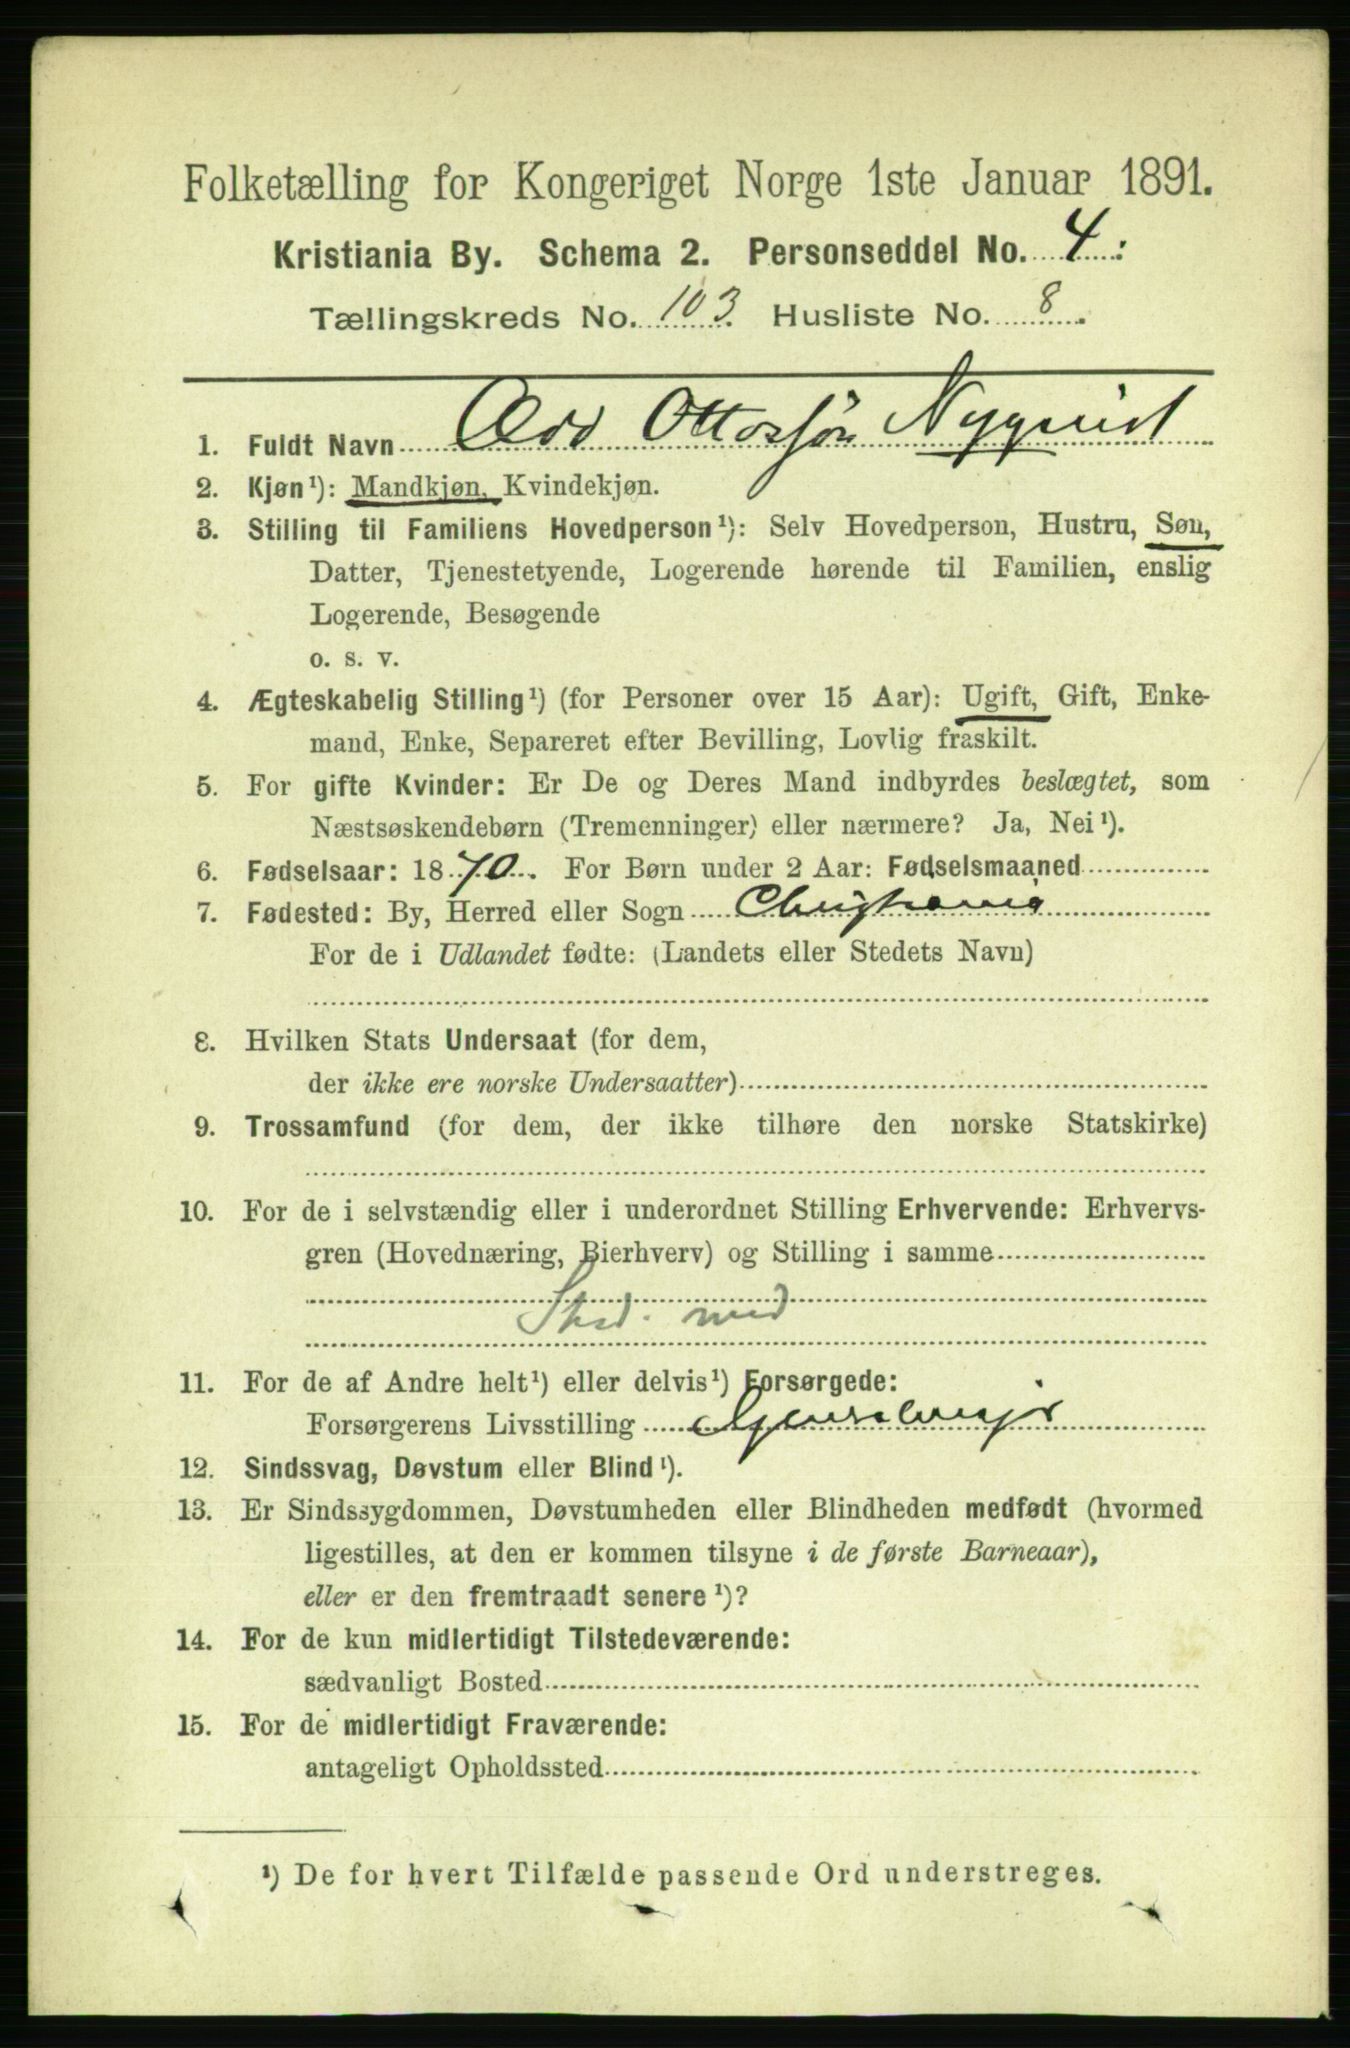 Folketælling for Kongeriget Norge 1ste Januar 1891.
Kristiania By. Schema 2. Personseddel No. 4.
Tællingskreds No. 103. Husliste No. 8.
1. Fuldt Navn Odd Ottosön Nyquist
2. Kjøn¹): Mandkjøn, Kvindekjøn.
3. Stilling til Familiens Hovedperson¹): Selv Hovedperson, Hustru, Søn,
Datter, Tjenestetyende, Logerende hørende til Familien, enslig
Logerende, Besøgende
o. s. v.
4. Ægteskabelig Stilling¹) (for Personer over 15 Aar): Ugift, Gift, Enke-
mand, Enke, Separeret efter Bevilling, Lovlig fraskilt.
5. For gifte Kvinder: Er De og Deres Mand indbyrdes beslægtet, som
Næstsøskendebørn (Tremenninger) eller nærmere? Ja, Nei¹).
6. Fødselsaar: 1870. For Børn under 2 Aar: Fødselsmaaned
7. Fødested: By, Herred eller Sogn Christiania
For de i Udlandet fødte: (Landets eller Stedets Navn)
8. Hvilken Stats Undersaat (for dem,
der ikke ere norske Undersaatter)
9. Trossamfund (for dem, der ikke tilhøre den norske Statskirke)
10. For de i selvstændig eller i underordnet Stilling Erhvervende: Erhvervs-
gren (Hovednæring, Bierhverv) og Stilling i samme
Stud. med
11. For de af Andre helt¹) eller delvis¹) Forsørgede:
Forsørgerens Livsstilling
12. Sindssvag, Døvstum eller Blind¹).
13. Er Sindssygdommen, Døvstumheden eller Blindheden medfødt (hvormed
ligestilles, at den er kommen tilsyne i de første Barneaar),
eller er den fremtraadt senere¹)?
14. For de kun midlertidigt Tilstedeværende:
sædvanligt Bosted
15. For de midlertidigt Fraværende:
antageligt Opholdssted
¹) De for hvert Tilfælde passende Ord understreges.